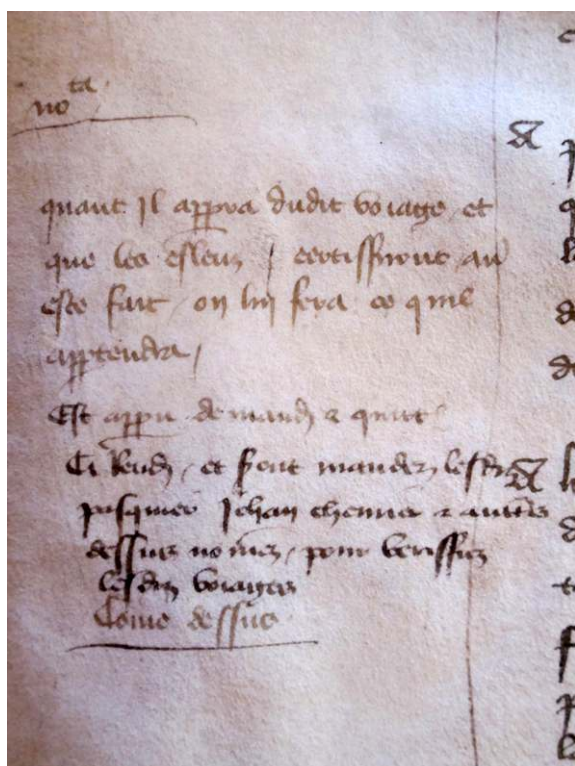 nota
quant Il appra dudit voiage et
que les esleuz certiffiront au
este fait on lui fera ce quil
apptendra
Est appu de mand & quict
Ci Rend, et sont mandez lesd
pasquier Jehan chenue & autres
dessus nomez, pour veriffier
lesd voiages
Come dessus